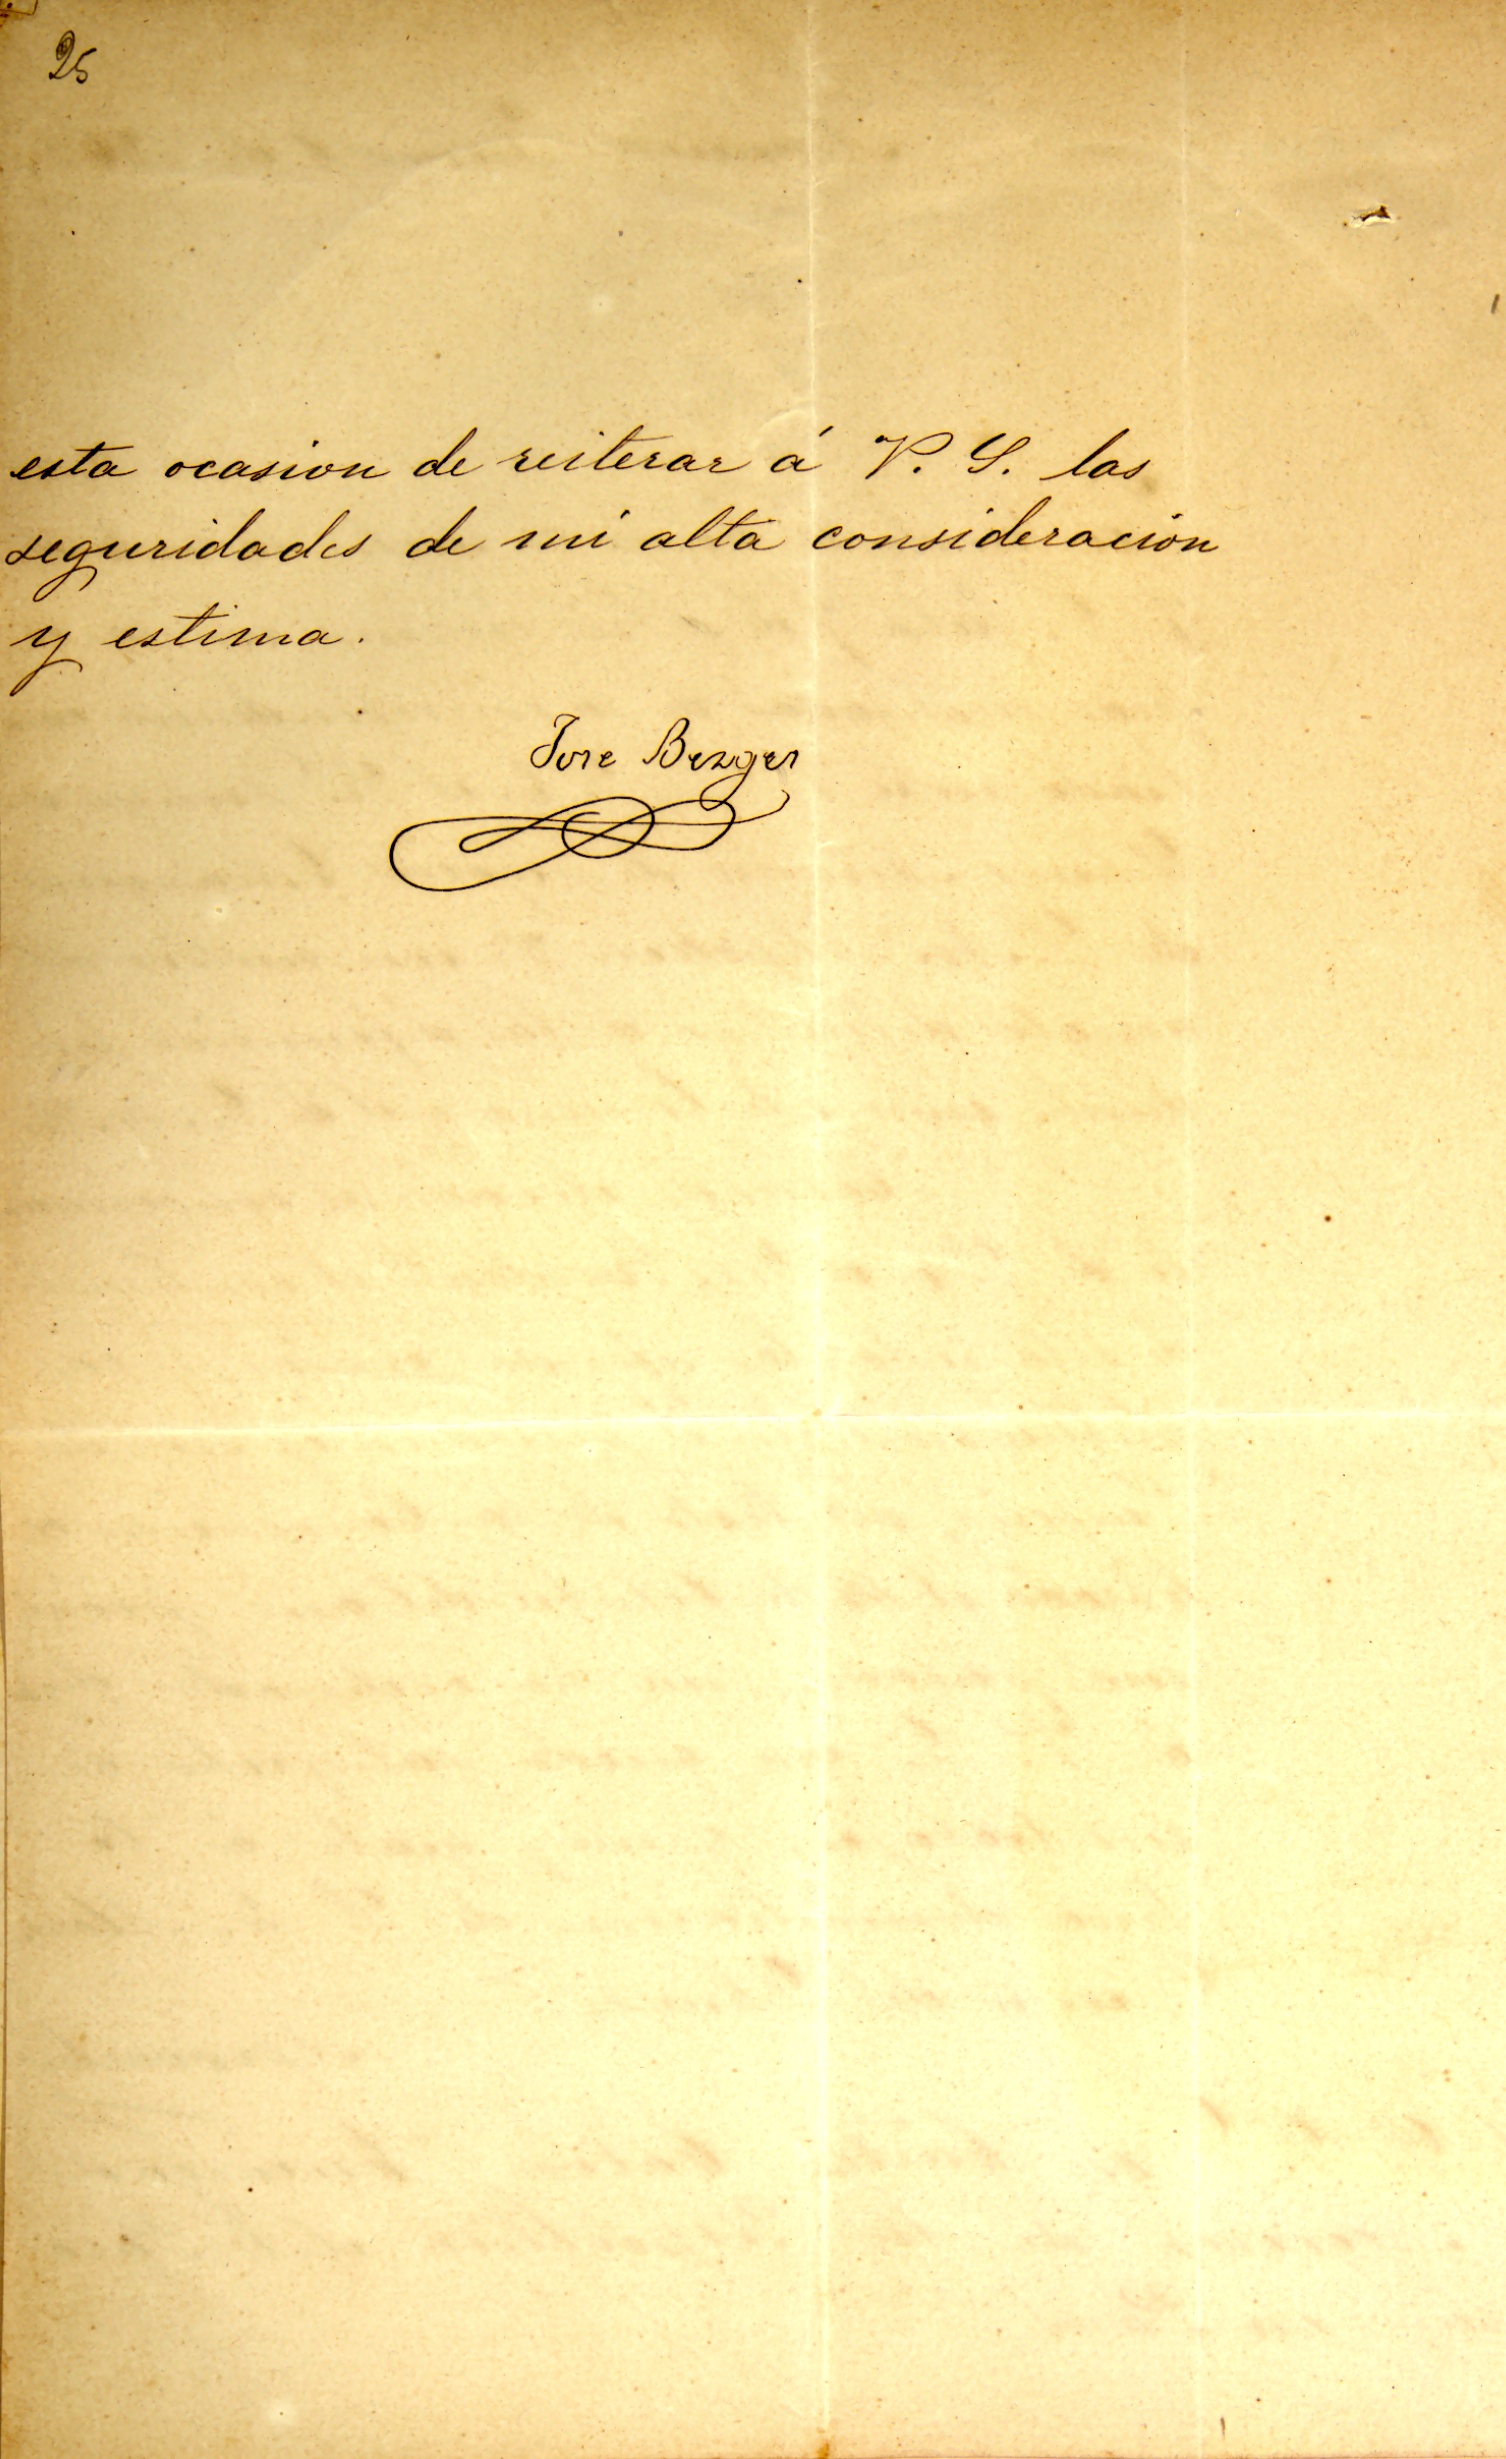 25
esta ocasion de reiterar á V. S. las
seguridades de mi alta consideracion
y estima.
Jose Berges